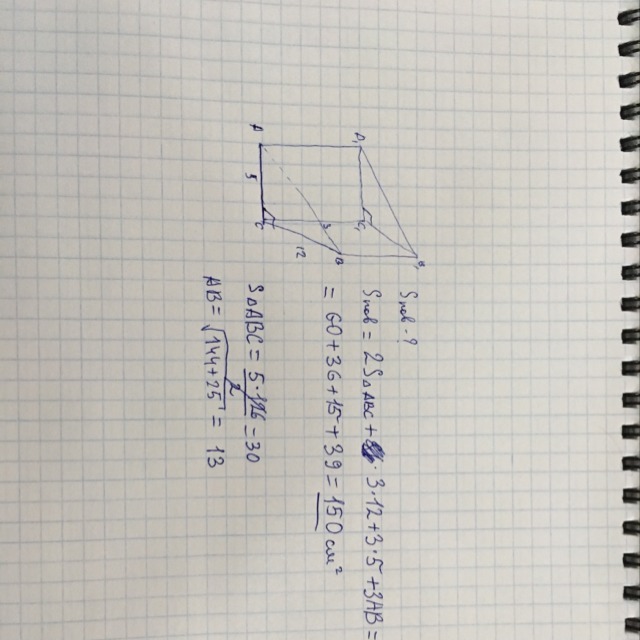 A₁
B₁
C₁
A
5
C
12
B
3
Sпов - ?
Sпов = 2S△ABC + 3·12+3·5+3AB =
= 60+36+15+39=150 см²
S△ABC = 5·12/2 = 30
AB = √144+25 = 13